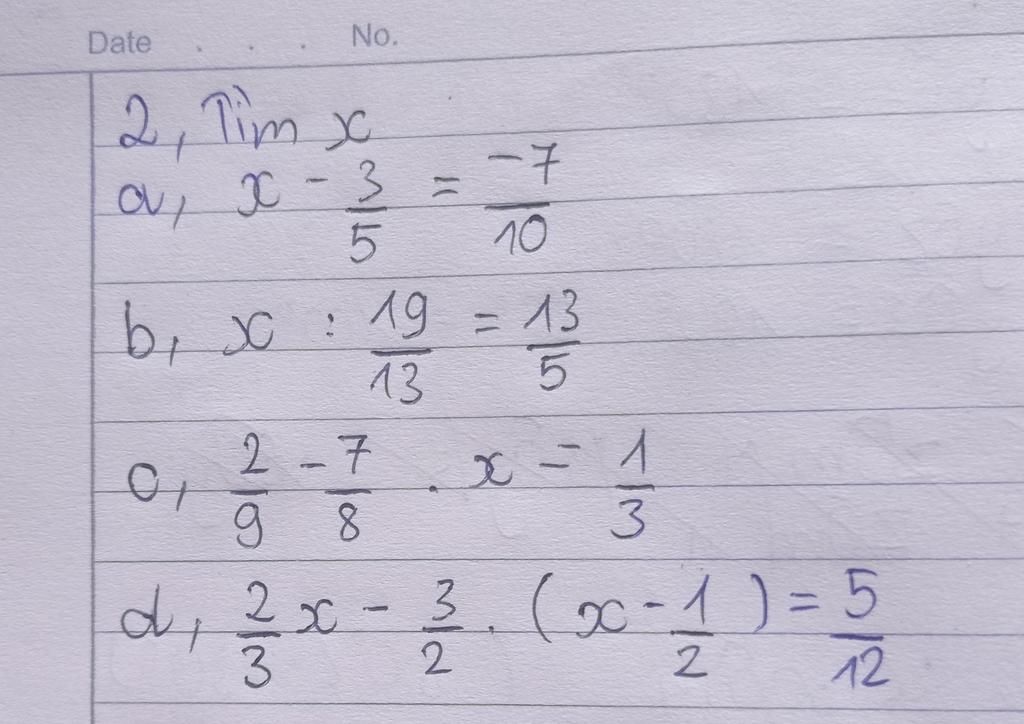 Date . . . No.
2, Tìm x
a, x - 3/5 = -7/10
b, x : 19/13 = 13/5
c, 2/9 - 7/8 . x = 1/3
d, 2/3 x - 3/2 . (x - 1/2) = 5/12